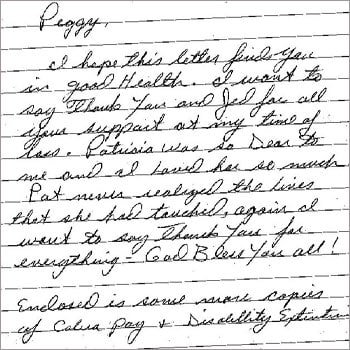 Peggy,
I hope this letter finds you
in good Health. I want to
say Thank You and Jed for all
your support at my time of
loss. Patricia was so Dear to
me and I loved her so much
Pat never realized the lives
that she had touched, again I
want to say Thank You for
everything - God Bless You all!
Enclosed is some more copies
of pay & Disability